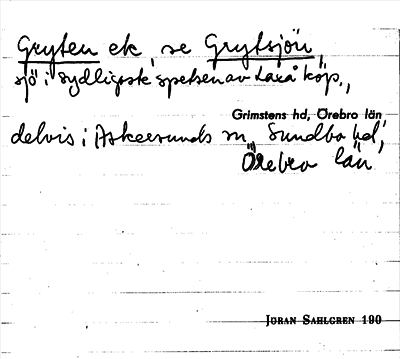 Gryten ek, se Grytsjön,
sjö i sydligste spetsen av Laxå köp.,
Grimstens hd, Örebro län
delvis i Askersunds sn, Sundbo hd,
Örebro län
JORAN SAHLGREN 190